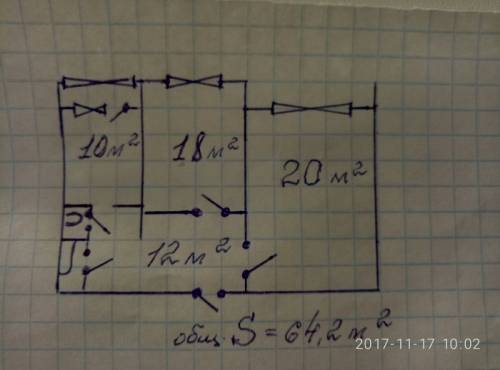 10 м²
18 м²
20 м²
12 м²
общ. S = 64,2 м²
2017-11-17 10:02